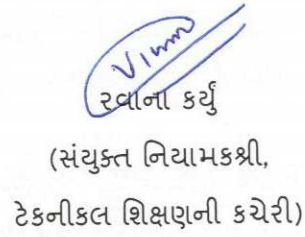 રવાના કર્યું
(સંયુક્ત નિયામકશ્રી,
ટેકનીકલ શિક્ષણની કચેરી)